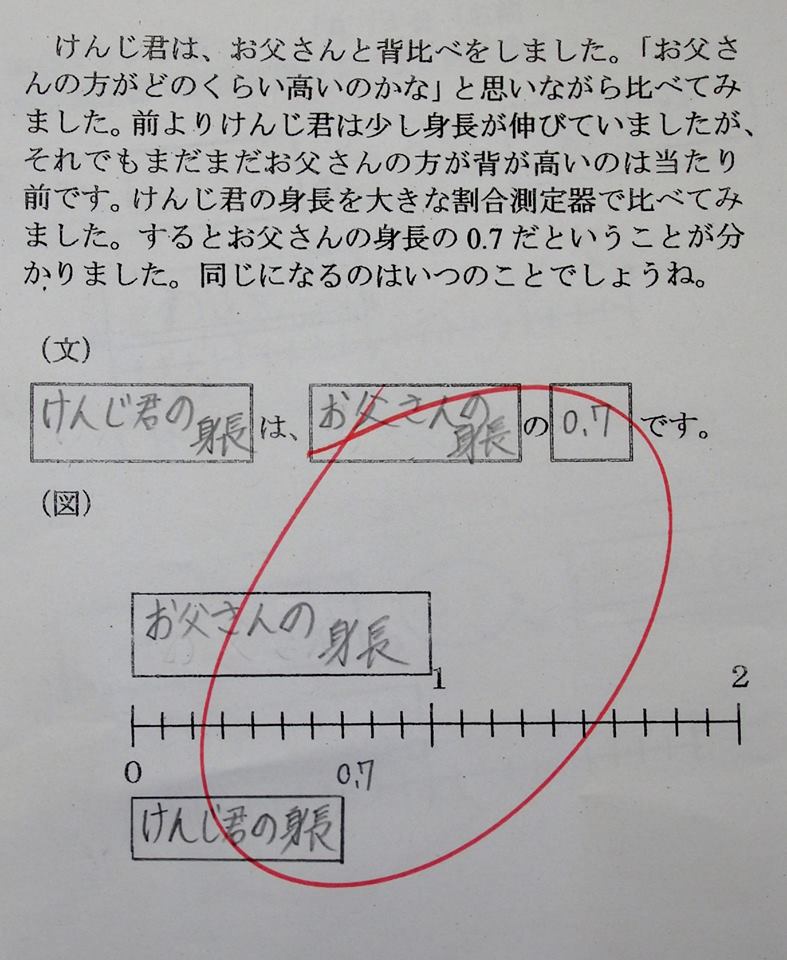 けんじ君は、お父さんと背比べをしました。「お父さ
んの方がどのくらい高いのかな」と思いながら比べてみ
ました。前よりけんじ君は少し身長が伸びていましたが、
それでもまだまだお父さんの方が背が高いのは当たり
前です。けんじ君の身長を大きな割合測定器で比べてみ
ました。するとお父さんの身長の0.7だということが分
かりました。同じになるのはいつのことでしょうね。
（文）
けんじ君の身長は、お父さんの身長の0.7です。
（図）
お父さんの身長
1 2
0 0.7
けんじ君の身長